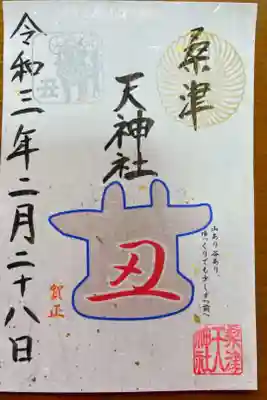 桒津
天神社
丑
山あり谷あり、
ゆっくりでも少しずつ前へ
桒津
天神社
賀正
丑
令和三年二月二十八日